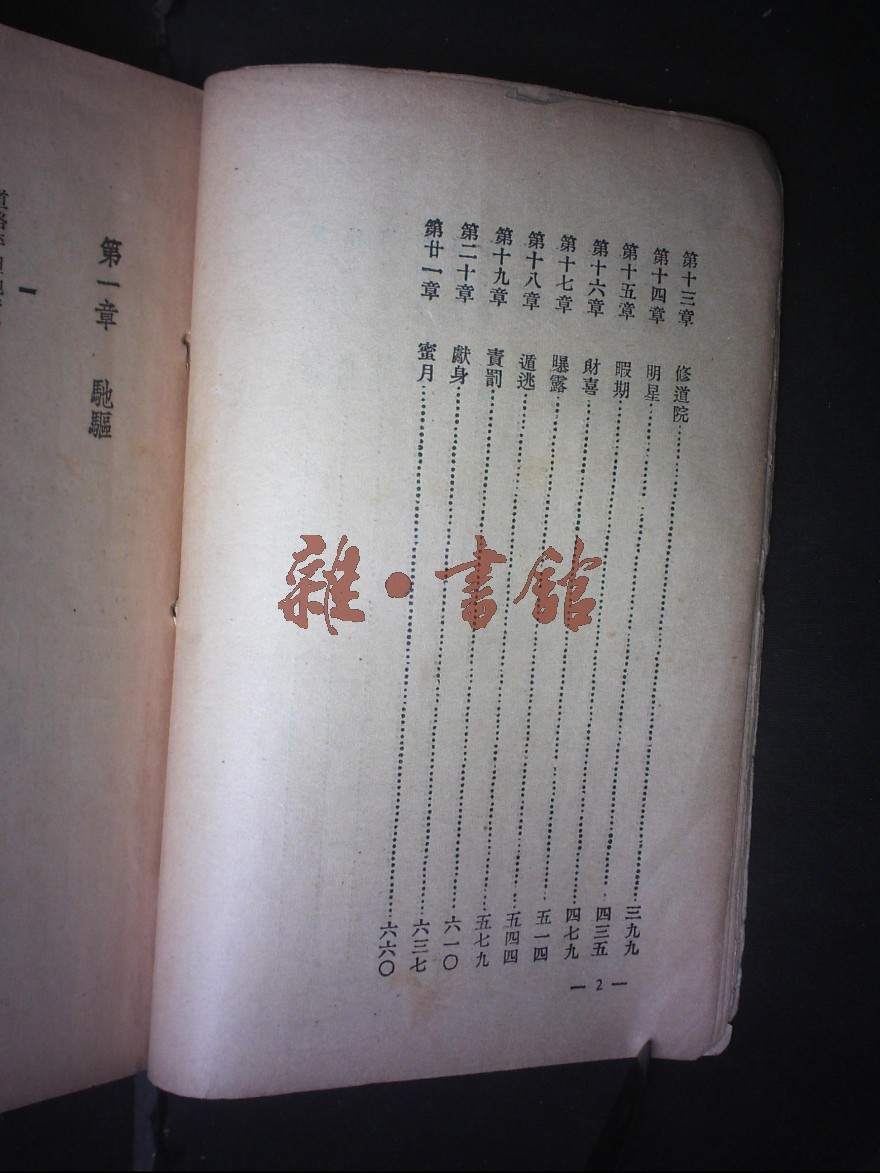 第十三章 修道院……三九九
第十四章 明星……四三五
第十五章 暇期……四七九
第十六章 財喜……五一四
第十七章 曝露……五四四
第十八章 遁逃……五七九
第十九章 責罰……六一〇
第二十章 獻身……六三七
第廿一章 蜜月……六六〇
— 2 —
雜·書館
第一章 馳驅
一